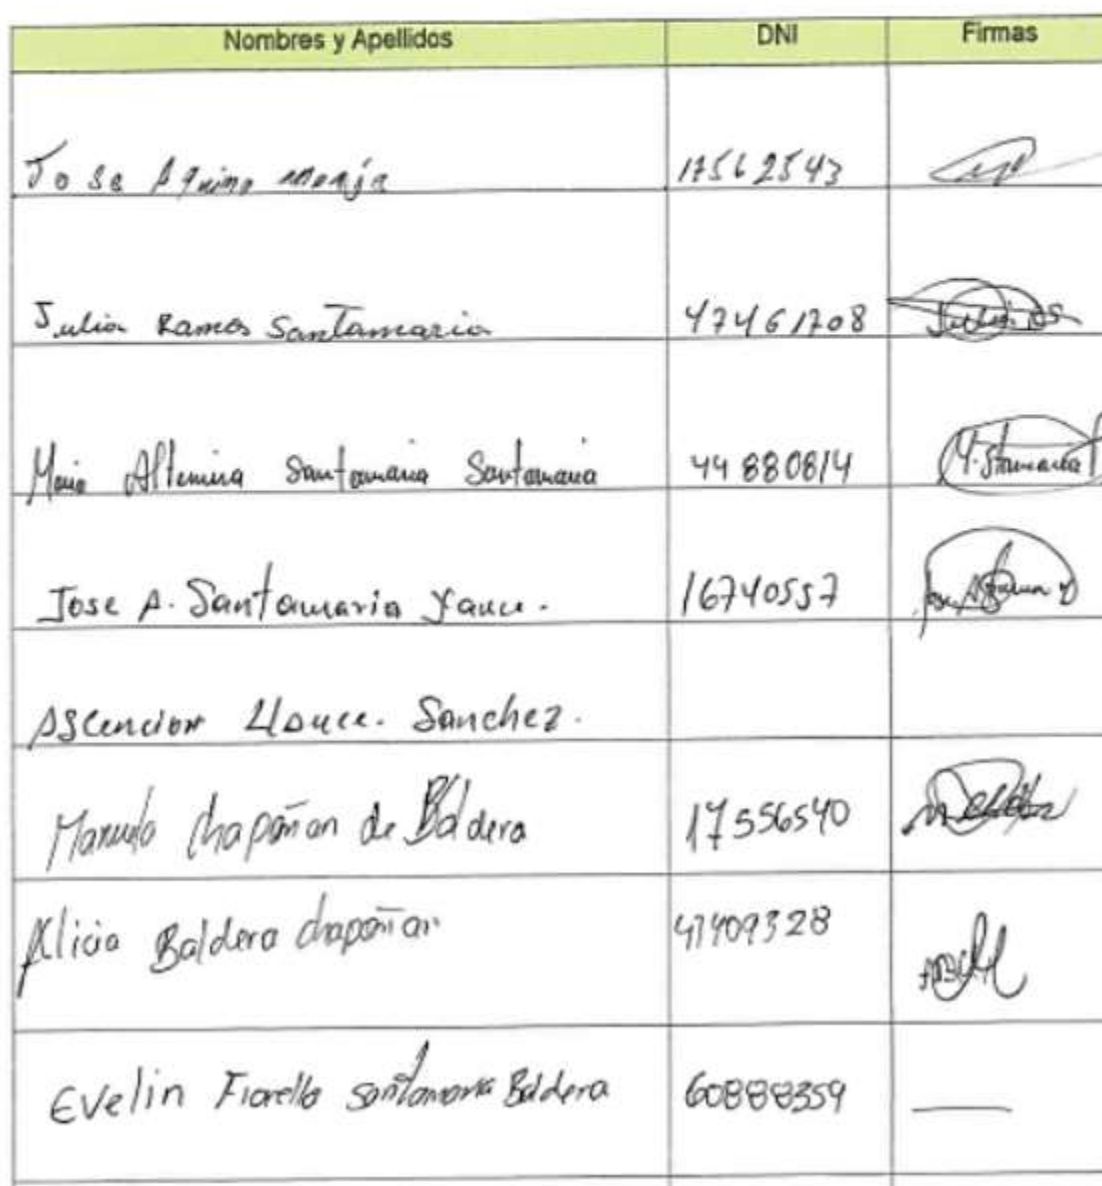 Nombres y Apellidos DNI Firmas
Jose Aquino monja 17562543
Julia Ramos Santamaria 47461708 Julia RS
Maria Altemira Santamaria Santamaria 44880814 M. Stamaria
Jose A. Santamaria Yauce. 16740557 Jose A
Ascencion Llauce. Sanchez.
Manuela Chapoñan de Baldera 17556540
Alicia Baldera chapoñan 41409328
Evelin Fiorella Santamaria Baldera 60888359